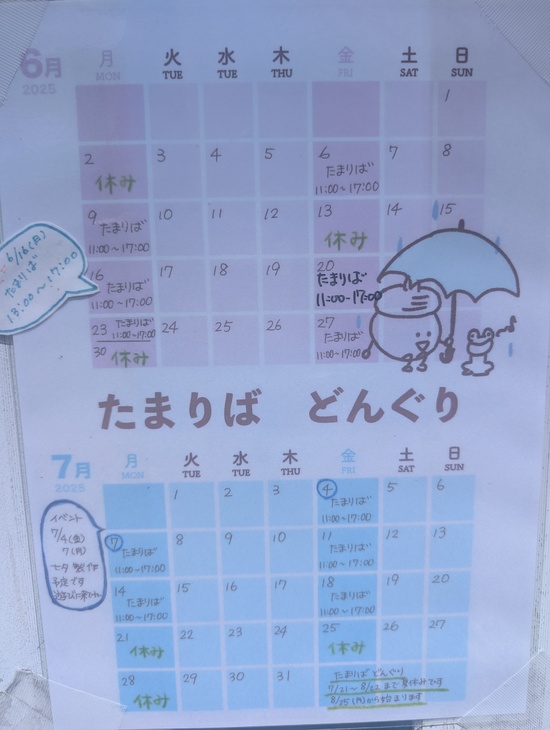 6月
2025
月 火 水 木 金 土 日
MON TUE WED THU FRI SAT SUN
1
2 3 4 5 6 7 8
休み たまりば
11:00~17:00
9 10 11 12 13 14 15
たまりば 休み
11:00~17:00
6/16(月)
たまりば
13:00~17:00
16 17 18 19 20
たまりば たまりば
11:00~17:00 11:00~17:00
23 たまりば 24 25 26 27
11:00~17:00 たまりば
30 休み 11:00~17:00
たまりば どんぐり
7月
2025
月 火 水 木 金 土 日
MON TUE TUE THU FRI SAT SUN
1 2 3 4 5 6
たまりば
11:00~17:00
イベント
7/4(金)
7(月)
七夕製作
予定です
7 8 9 10 11 12 13
たまりば たまりば
11:00~17:00 11:00~17:00
14 15 16 17 18 19 20
たまりば たまりば
11:00~17:00 11:00~17:00
21 22 23 24 25 26 27
休み 休み
28 29 30 31
休み
たまりばどんぐり
7/21~8/22まで夏休みです
8/25(月)から始まります